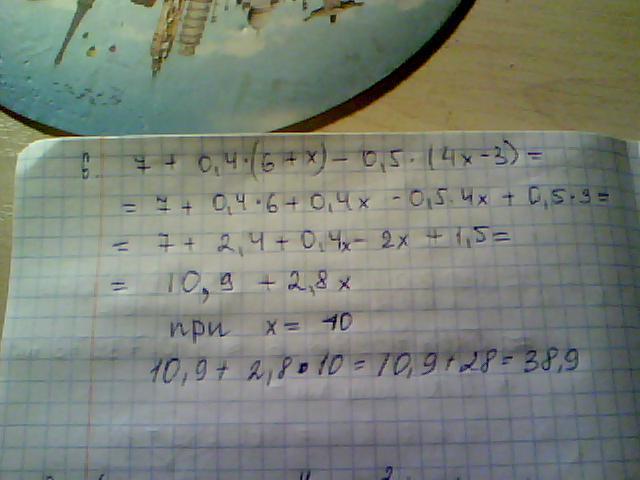 6. 7 + 0,4·(6+x) - 0,5·(4x-3) =
= 7 + 0,4·6 + 0,4x - 0,5·4x + 0,5·3 =
= 7 + 2,4 + 0,4x - 2x + 1,5 =
= 10,9 + 2,8x
при x = 10
10,9 + 2,8·10 = 10,9 + 28 = 38,9